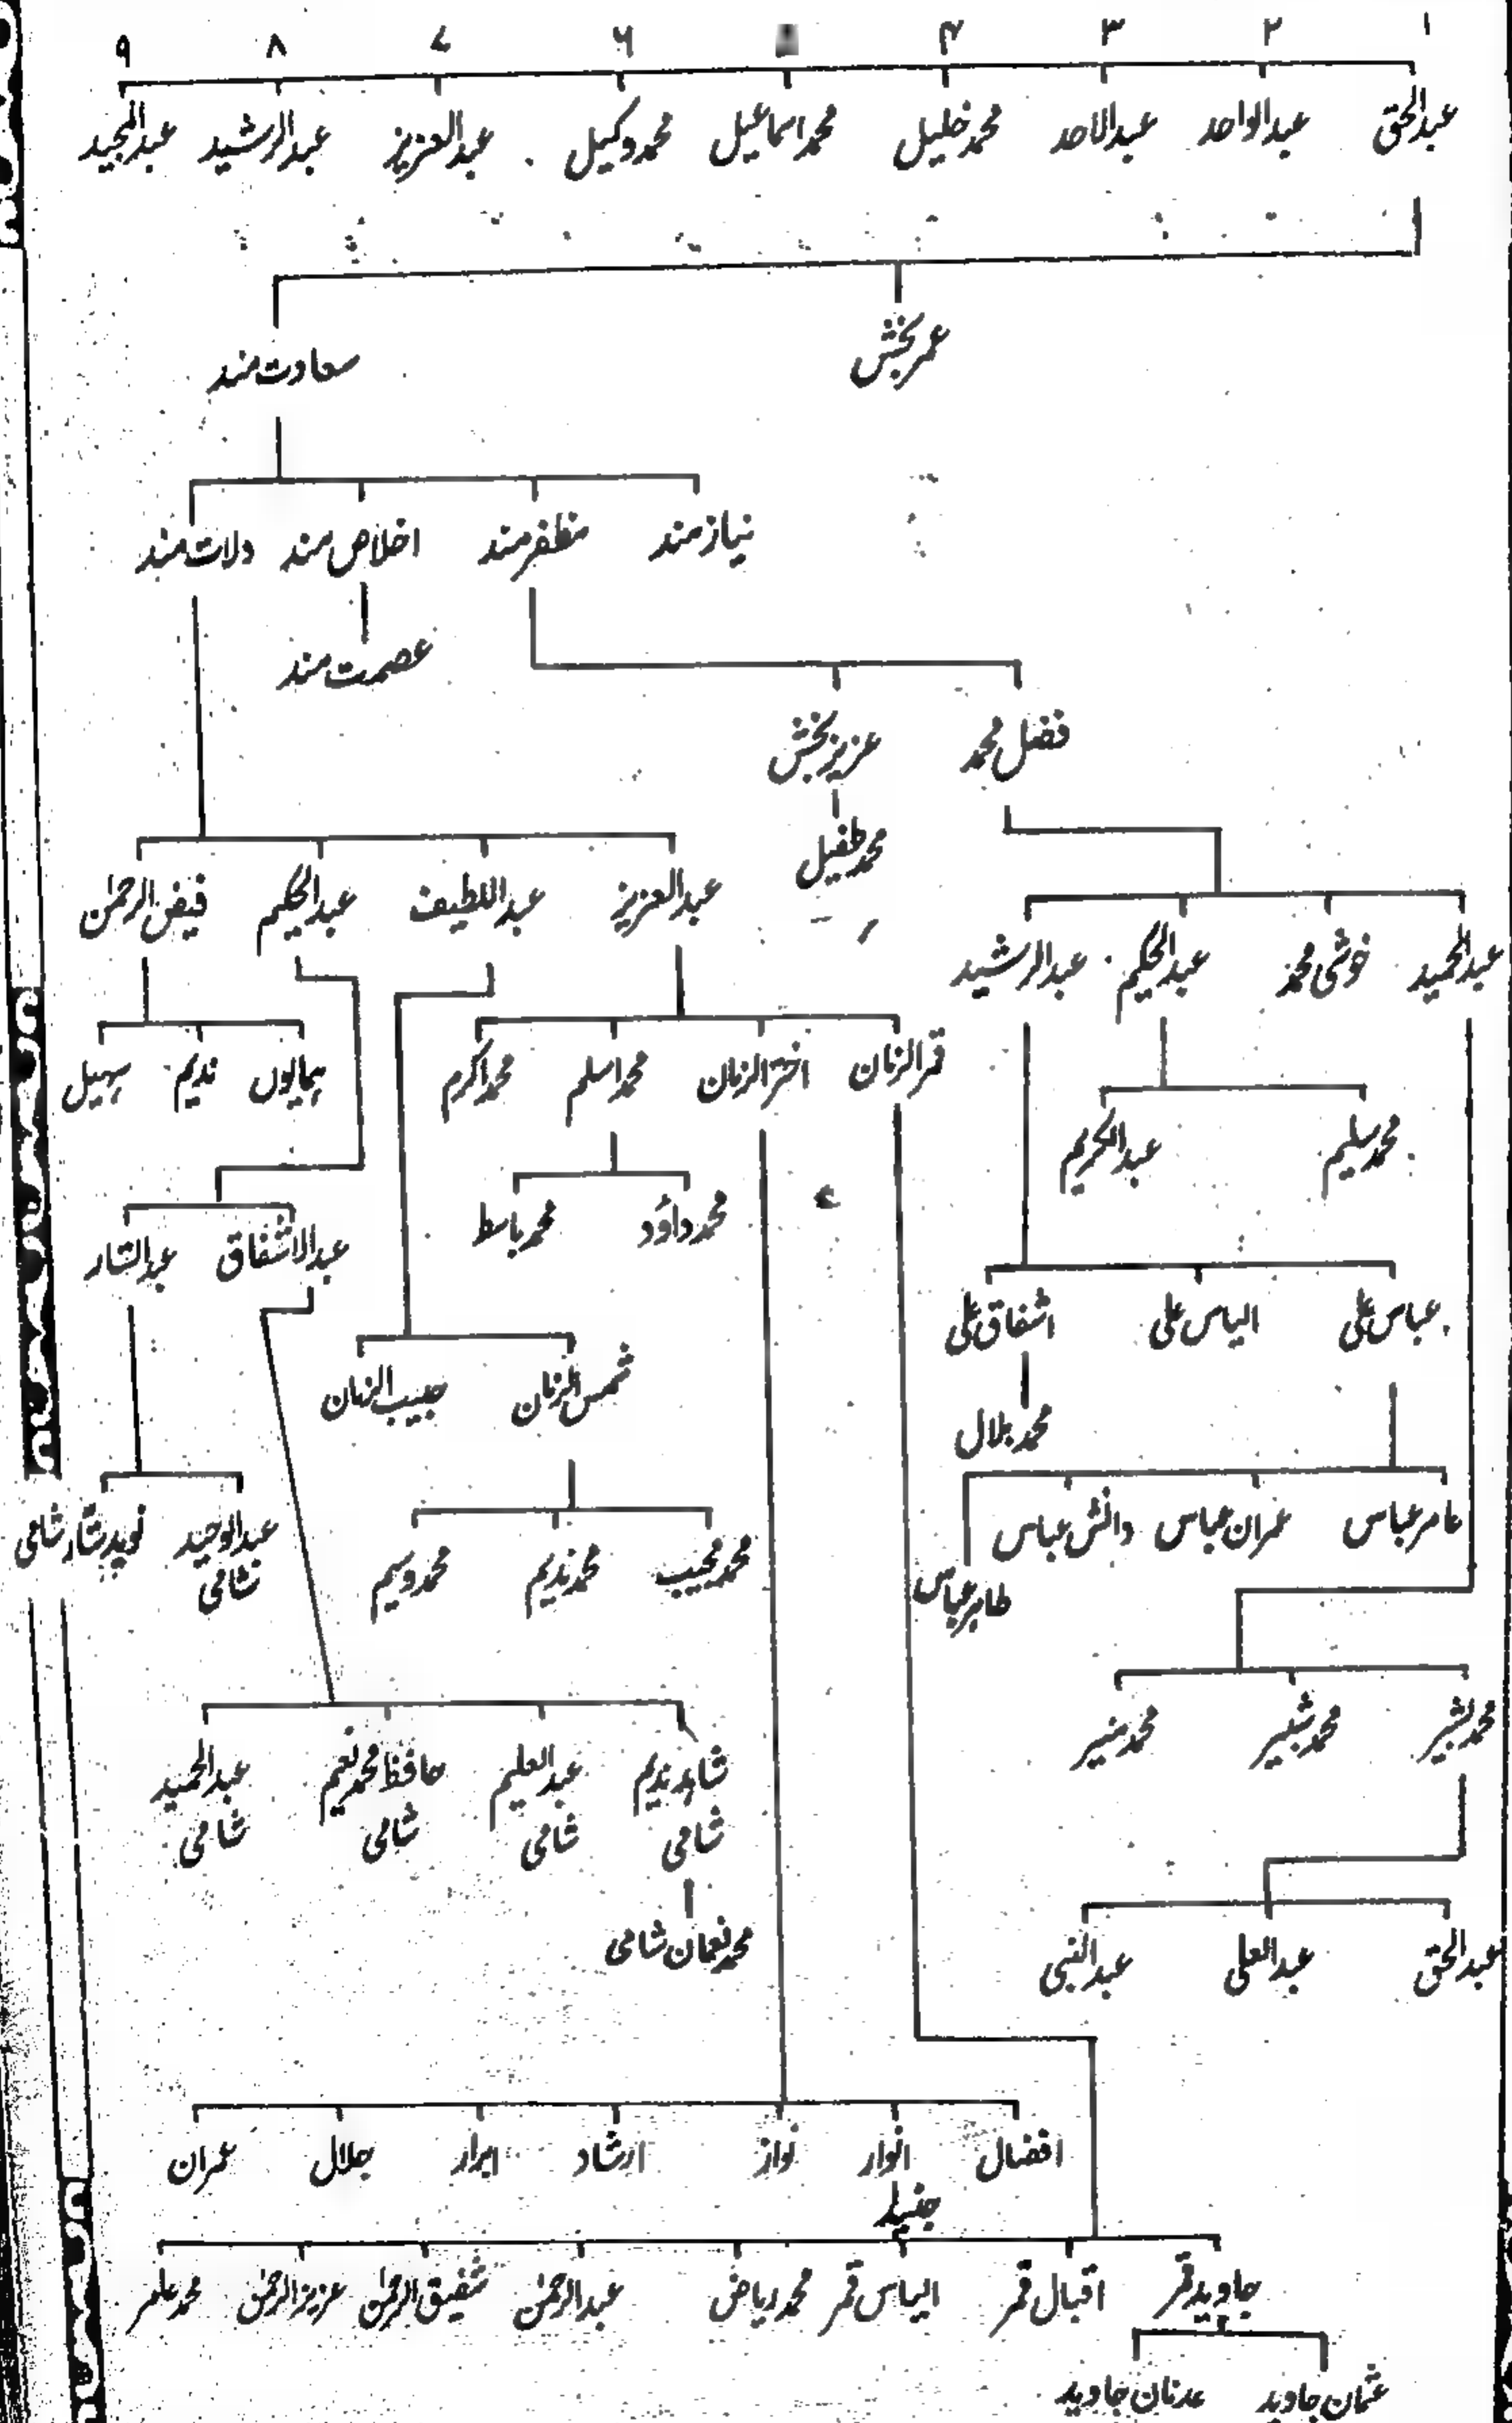 ۱ ۲ ۳ ۴ ۶ ۷ ۸ ۹
عبدالحق عبدالواحد عبدالاحد محمد خلیل محمد اسماعیل محمد وکیل عبدالعزیز عبدالرشید عبدالمجید
عمر بخش سعادت مند
نیاز مند مظفر مند اخلاص مند دلات مند
عصمت مند
فضل محمد عزیز بخش
محمد طفیل
عبدالعزیز عبداللطیف عبدالحکیم فیض الرحمٰن
عبدالحمید خوشی محمد عبدالحکیم عبدالرشید
قمر الزمان اختر الزمان محمد اسلم محمد اکرم ہمایوں ندیم سہیل
محمد سلیم عبدالکریم
محمد داؤد محمد باسط عبدالاشفاق عبدالستار
عباس علی الیاس علی اشفاق علی
شمس الزمان حبیب الزمان
محمد بلال
عامر عباس عمران عباس دانش عباس
طاہر عباس
محمد مجیب محمد ندیم محمد وسیم عبدالوحید نوید ستار شامی
شامی
محمد بشیر محمد شبیر محمد منیر
شاہد ندیم عبدالعلیم حافظ محمد نعیم عبدالحمید
شامی شامی شامی شامی
محمد نعمان شامی
عبدالحق عبدالعلی عبدالنبی
افضال انوار نواز ارشاد ابرار جلال عمران
جنید
جاوید قمر اقبال قمر الیاس قمر محمد ریاض عبدالرحمٰن شفیق الرحمٰن عزیز الرحمٰن محمد عامر
عثمان جاوید عدنان جاوید